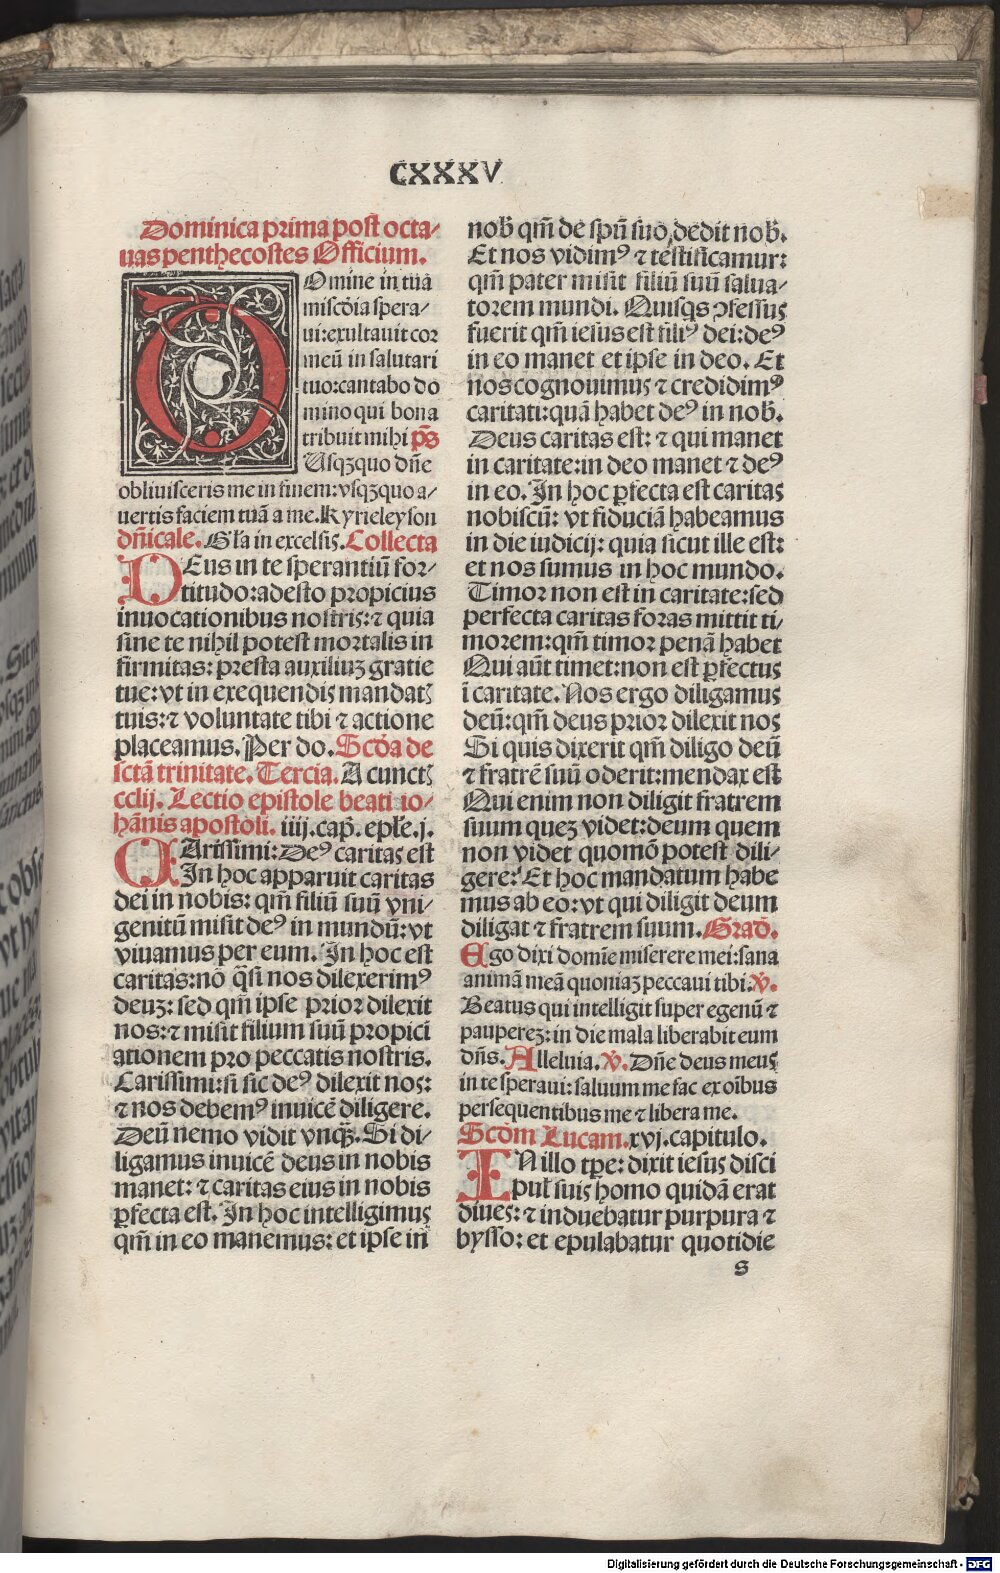 CXXXV
Dominica prima post octa/
uas penthecostes Officium.
Domine in tua
miscdia spera/
ui: exultauit cor
meū in salutari
tuo: cantabo do
mino qui bona
tribuit mihi p̄s
Usqꝫquo dn̄e
obliuisceris me in finem: vsqꝫquo a/
uertis faciem tuā a me. Kyrieleyson
dn̄icale. Gl̄a in excelsis. Collecta
DEus in te sperantiū for/
titudo: adesto propicius
inuocationibus nostris: ⁊ quia
sine te nihil potest mortalis in
firmitas: presta auxiliuꝫ gratie
tue: vt in exequendis mandatꝭ
tuis: ⁊ voluntate tibi ⁊ actione
placeamus. Per do. Scd̄a de
sctā trinitate. Tercia. A cunctꝭ
cclij. Lectio epistole beati io/
hānis apostoli. iiij. cap̄. epl̄e. j.
CArissimi: Deꝰ caritas est
In hoc apparuit caritas
dei in nobis: qm̄ filiū suū vni/
genitū misit deꝰ in mundū: vt
viuamus per eum. In hoc est
caritas: nō q̄si nos dilexerimꝰ
deuꝫ: sed qm̄ ipse prior dilexit
nos: ⁊ misit filium suū propici
ationem pro peccatis nostris.
Carissimi: si sic deꝰ dilexit nos:
⁊ nos debemꝰ inuicē diligere.
Deū nemo vidit vnqꝫ. Si di/
ligamus inuicē deus in nobis
manet: ⁊ caritas eius in nobis
ꝑfecta est. In hoc intelligimus
qm̄ in eo manemus: et ipse in
nob̄ qm̄ de spū suo dedit nob̄.
Et nos vidimꝰ ⁊ testificamur:
qm̄ pater misit filiū suū salua/
torem mundi. Quisqs ꝯfessus
fuerit qm̄ iesus est filiꝰ dei: deꝰ
in eo manet et ipse in deo. Et
nos cognouimus ⁊ credidimꝰ
caritati: quā habet deꝰ in nob̄.
Deus caritas est: ⁊ qui manet
in caritate: in deo manet ⁊ deꝰ
in eo. In hoc ꝑfecta est caritas
nobiscū: vt fiduciā habeamus
in die iudicij: quia sicut ille est:
et nos sumus in hoc mundo.
Timor non est in caritate: sed
perfecta caritas foras mittit ti/
morem: qm̄ timor penā habet
Qui aūt timet: non est ꝑfectus
ī caritate. Nos ergo diligamus
deū: qm̄ deus prior dilexit nos
Si quis dixerit qm̄ diligo deū
⁊ fratrē suū oderit: mendax est
Qui enim non diligit fratrem
suum queꝫ videt: deum quem
non videt quomō potest dili/
gere: Et hoc mandatum habe
mus ab eo: vt qui diligit deum
diligat ⁊ fratrem suum. Grad̄.
Ego dixi domīe miserere mei: sana
animā meā quoniaꝫ peccaui tibi. V̄.
Beatus qui intelligit super egenū ⁊
paupereꝫ: in die mala liberabit eum
dn̄s. Alleluia. V̄. Dn̄e deus meus
in te speraui: saluum me fac ex oībus
persequentibus me ⁊ libera me.
Scd̄m Lucam. xvj. capitulo.
IN illo tp̄e: dixit iesus disci
pul̄ suis homo quidā erat
diues: ⁊ induebatur purpura ⁊
bysso: et epulabatur quotidie
s
Digitalisierung gefördert durch die Deutsche Forschungsgemeinschaft - DFG